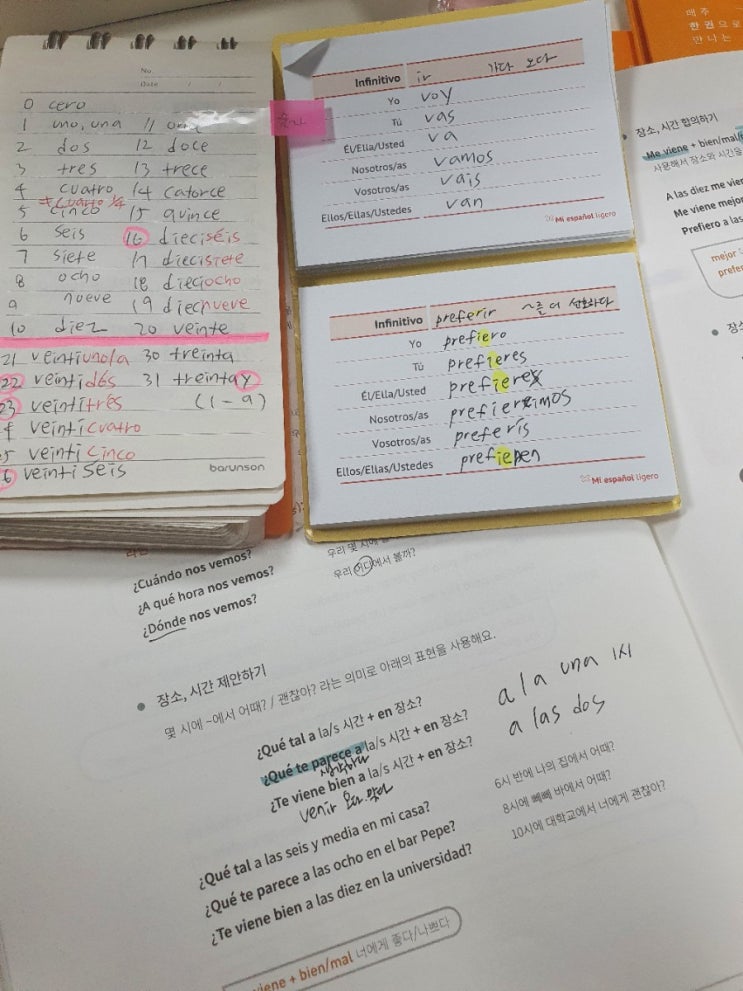 No
Date / /
0 cero
1 uno, una 11 once
2 dos 12 doce
3 tres 13 trece
4 cuatro 14 catorce
≠ cuarto 1/4
5 cinco 15 quince
6 seis 16 dieciséis
7 siete 17 diecisiete
8 ocho 18 dieciocho
9 nueve 19 diecnueve
10 diez 20 veinte
21 veintiuno/a 30 treinta
22 veintidós 31 treinta y
23 veintitrés (1-9)
veinticuatro
veinticinco
6 veintiseis
barunson
Infinitivo ir 가다 오다
Yo voy
Tú vas
Él/Ella/Usted va
Nosotros/as vamos
Vosotros/as vais
Ellos/Ellas/Ustedes van
Mi español ligero
Infinitivo preferir ~를 더 선호하다
Yo prefiero
Tú prefieres
Él/Ella/Usted prefiere
Nosotros/as
Vosotros/as preferís
Ellos/Ellas/Ustedes prefieren
Mi español ligero
매주
한 권으로
만나는
장소, 시간 합의하기
Me viene + bien/mal/
사용해서 장소와 시간을
A las diez me vien
Me viene mejor
Prefiero a las
mejor
prefer
¿Cuándo nos vemos?
¿A qué hora nos vemos?
¿Dónde nos vemos?
우리 몇 시에
우리 어디에서 볼까?
장소, 시간 제안하기
몇 시에 ~에서 어때? / 괜찮아? 라는 의미로 아래의 표현을 사용해요.
¿Qué tal a la/s 시간 + en 장소?
¿Qué te parece a la/s 시간 + en 장소?
생각하다
¿Te viene bien a la/s 시간 + en 장소?
venir 오다 맞다
a la una 1시
a las dos
¿Qué tal a las seis y media en mi casa?
¿Qué te parece a las ocho en el bar Pepe?
¿Te viene bien a las diez en la universidad?
6시 반에 나의 집에서 어때?
8시에 빼빼 바에서 어때?
10시에 대학교에서 너에게 괜찮아?
viene + bien/mal 너에게 좋다/나쁘다